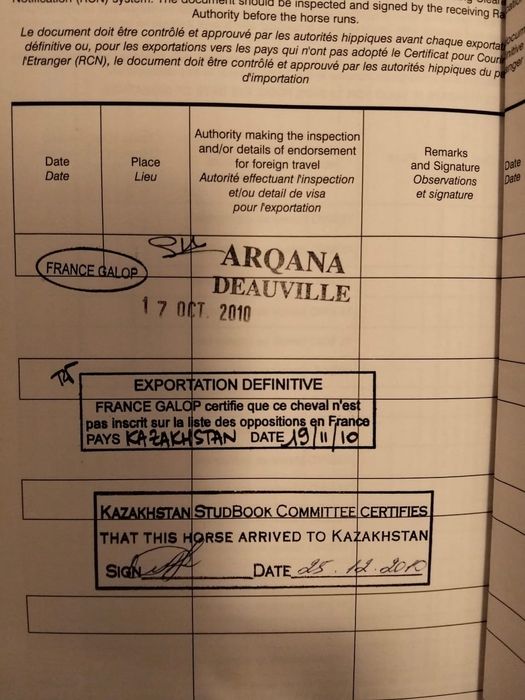 Notification (RCN) system. The document should be inspected and signed by the receiving
Authority before the horse runs.
Le document doit être contrôlé et approuvé par les autorités hippiques avant chaque
définitive ou, pour les exportations vers les pays qui n'ont pas adopté le Certificat pour
l'Etranger (RCN), le document doit être contrôlé et approuvé par les autorités hippiques du
d'importation
Date
Date
Place
Lieu
Authority making the inspection
and/or details of endorsement
for foreign travel
Autorité effectuant l'inspection
et/ou detail de visa
pour l'exportation
Remarks
and Signature
Observations
et signature
Date
Date
FRANCE GALOP
ARQANA
DEAUVILLE
17 OCT. 2010
EXPORTATION DEFINITIVE
FRANCE GALOP certifie que ce cheval n'est
pas inscrit sur la liste des oppositions en France
PAYS KAZAKHSTAN DATE 19/11/10
KAZAKHSTAN STUDBOOK COMMITTEE CERTIFIES
THAT THIS HORSE ARRIVED TO KAZAKHSTAN
SIGN DATE 25.12.2010